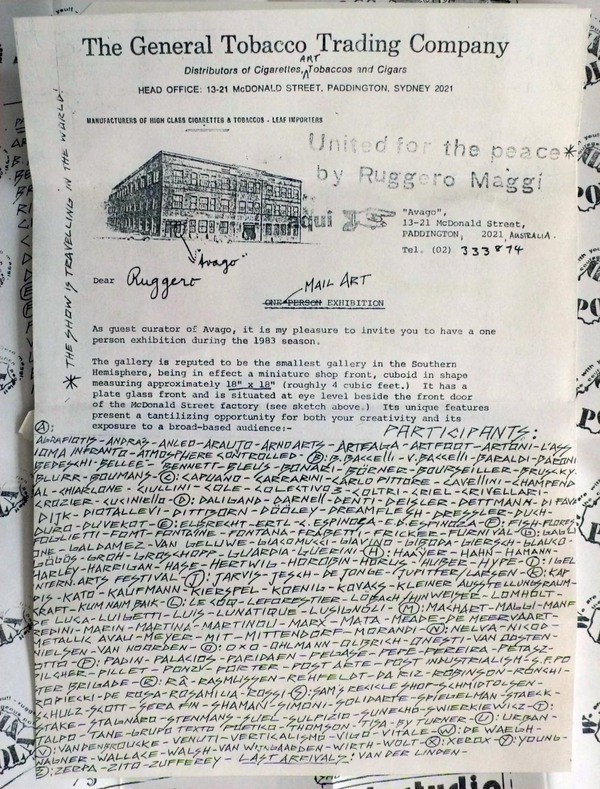 The General Tobacco Trading Company
ART
Distributors of Cigarettes, Tobaccos and Cigars
HEAD OFFICE: 13-21 McDONALD STREET, PADDINGTON, SYDNEY 2021
MANUFACTURERS OF HIGH CLASS CIGARETTES & TOBACCOS - LEAF IMPORTERS
United for the peace*
by Ruggero Maggi
aqui
"Avago",
13-21 McDonald Street,
PADDINGTON, 2021, AUSTRALIA.
Tel. (02) 333874
"Avago"
* THE SHOW IS TRAVELLING IN THE WORLD!
Dear Ruggero
MAIL ART
ONE PERSON EXHIBITION
As guest curator of Avago, it is my pleasure to invite you to have a one
person exhibition during the 1983 season.
The gallery is reputed to be the smallest gallery in the Southern
Hemisphere, being in effect a miniature shop front, cuboid in shape
measuring approximately 18" x 18" (roughly 4 cubic feet.) It has a
plate glass front and is situated at eye level beside the front door
of the McDonald Street factory (see sketch above.) Its unique features
present a tantilizing opportunity for both your creativity and its
exposure to a broad-based audience:-
PARTICIPANTS:
A:
AGRAFIOTIS-ANDRAS-ANLEO-ARAUJO-ARNOARTS-ARTEAGA-ARTFOOT-ARTONI-L'ASS
IOMA INFRANTO-ATMOSPHERE CONTROLLED-B:B.BACCELLI-V.BACCELLI-BARALDI-BARONI
BEDESCHI-BELLEE-BENNETT-BLEUS-BONARI-BÖRNER-BOURSEILLER-BRUSCKY
BLURR-BOUMANS-C:CAPUANO-CARRARINI-CARLO PITTORE-CAVELLINI-CHAMPEND
AL-CHIARLONE-CIULLINI-COLE-COLECTIVO 3-COLTRI-CRIEL-CRIVELLARI-
CROZIER-CUCINIELLO-D:DALIGAND-DARNELL-DENTI-DEISLER-DETTMANN-DI FAVA
DIJK-DIOTALLEVI-DITTBORN-DÖÖLEY-DREAMFLESH-DRESSLER-DUCH-
DURO-DUVEKOT-E:ELBRECHT-ERTL-C.ESPINOZA-E.D.ESPINOZA-F:FISH-FLORES
FOGLIETTI-FONT-FONTAINE-FONTANA-FRABETTI-FRICKER-FURNIVAL-G:GABLI
ONE-GALDAMEZ-VAN GELUWE-GIACOMUCCI-GAVINO-GIBODA-GIERSCH-GLAUCO
GÖGÖS-GROH-GROSCHOPP-GUARDIA-GUERINI-H:HAAYER-HAHN-HAMANN-
HARLEY-HARRIGAN-HASE-HERTWIG-HOROBIN-HORUS-HUBER-HYPE-I:IGEL
INTERN.ARTS FESTIVAL-J:JARVIS-JESCH-DE JONGE-JUPITTER/LARSEN-K:KAR
IS-KATO-KAUFMANN-KIERSPEL-KOENIG-KOVACS-KLEINER AUSSTELLUNGSRAUM-
KRAFT-KUM NAM BAIK-L:LE COQ-LEFORESTIER-LOBACH HINWEISER-LOMHOLT-
DE LUCA-LUIGETTI-LUIS-LUNATIQUE-LUSIGNOLI-M:MACHART-MAGGI-MANF
REDINI-MARIN-MARTINA-MARTINOU-MARX-MATA-MEADE-DE MEERVAART-
METALLIC AVAU-MEYER-MIT-MITTENDORF-MORANDI-N:NELVA-NICOD-
NIELSEN-VAN NOORDEN-O:OXO-OHLMANN-OLBRICH-ONESTI-VAN OOSTEN-
OTTO-P:PADIN-PALACIOS-PARIDAEN-PEGASE-PEPE-PEREIRA-PETASZ-
PILCHER-PILLET-PORY-PORTER-POST ARTE-POST INDUSTRIALISH-S.F.PO
TER BRIGADE-R:RÂ-RASMUSSEN-REHFELDT-DA RIZ-ROBINSON-RÖNCHI-
ROPIECKI-DE ROSA-ROSAMILIA-ROSSI-S:SAM'S RECICLE SHOP-SCHMIDT OLSEN-
SCHULZ-SCOTT-SERAFIN-SHAMAN-SIMONI-SOLIDARTE-SPIEGELMAN-STAECK-
STAKE-STAGNARO-STENMANS-SUEL-SULPIZIO-SUVECHO-SWIERKIEWICZ-T:
TALPO-TANE-GRUPO TEXTO POETICO-THOMSON-TISA-BY TURNER-U:URBAN-
V:VANDENBROUCKE-VENUTI-VERTICALISMO-VIGO-VITALE-W:DE WAEGH-
WAGNER-WALLACE-WALSH-VAN WIJNGAARDEN-WIRTH-WOLT-X:XEROX-Y:YOUNG-
Z:ZERPA-ZITO-ZUFFEREY-LAST ARRIVAL: VAN DER LINDEN-